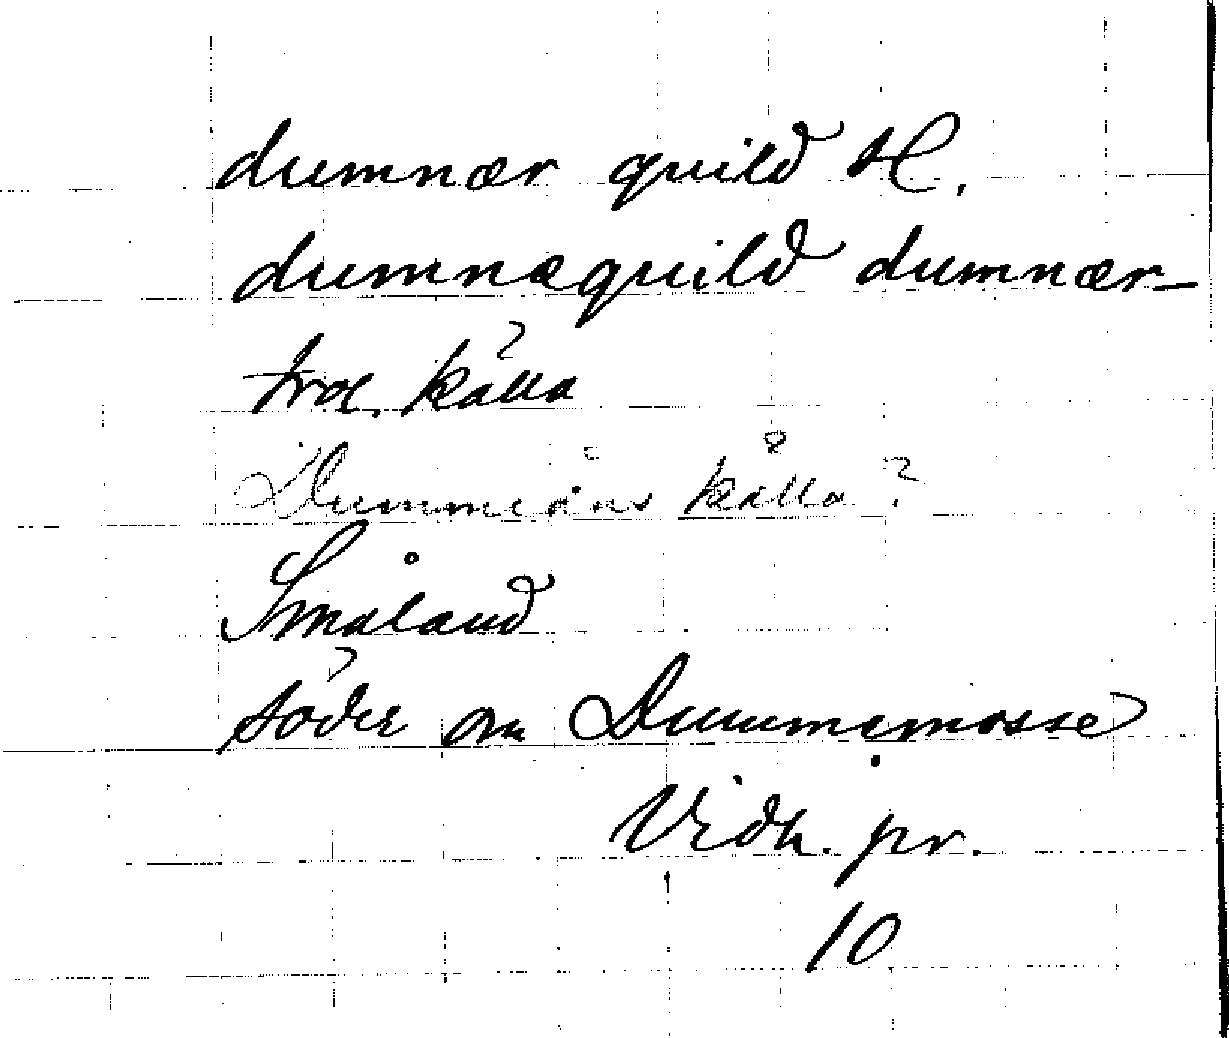 dumnær quild H.
dumnæquild dumnær-
trol. källa
Dummeåns källa?
Småland
söder om Dummemosse
Vidh. pr.
10